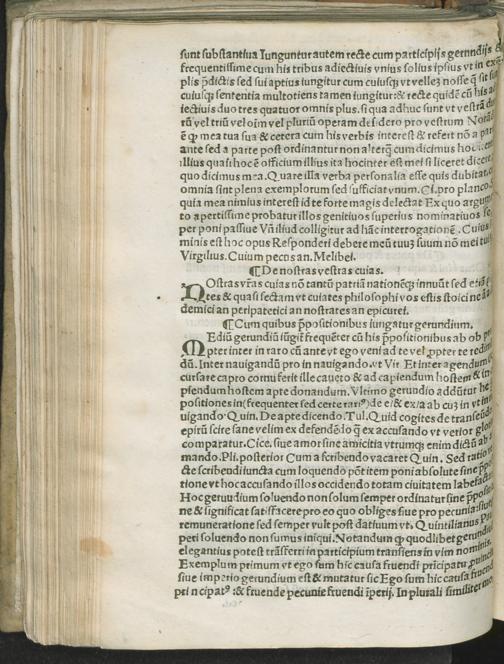 sunt substantiua Iunguntur autem recte cum participijs gerundijs &
frequentissime cum his tribus adiectiuis vnius solius ipsius vt in
plis p̄dictis sed sui aptius iungitur cum cuiusq; vt vellez nosse q̄ sit
cuiusq; sententia multotiens tamen iungitur: & recte quidē cū his ad
iectiuis duo tres quatuor omnis plus. si qua adhuc sunt vt vestrā
rū vel triū vel oīm vel pluriū operam desidero pro vestrum
ē ꝙ mea tua sua & cetera cum his verbis interest & refert nō a
ante sed a parte post ordinantur non alterq̄ cum dicimus
illius quasi hoc ē officium illius ita hoc interest mei si liceret dicere
quo dicimus mea. Quare illa verba personalia esse quis dubitat
omnia sint plena exemplorum sed sufficiat vnum. Ci. pro planco
quia mea nimius interest id te forte magis delectat Ex quo
to apertissime probatur illos genitiuos superius nominatiuos
per poni passiue Vn̄ illud colligitur ad hāc interrogationē. Cuius
minis est hoc opus Responderi debere meū tuuz suum nō mei tui
Virgilius. Cuium pecus an. Melibei.
¶ De nostras vestras cuias.
NOstras vr̄as cuias nō tantū patriā nationēq; innuūt sed etiā
tes & quasi sectam vt cuiates philosophi vos estis stoici ne
demici an peripatetici an nostrates an epicurei.
¶ Cum quibus p̄positionibus iungatur gerundium.
MEdiū gerundiū iūgit̄ frequēter cū his p̄positionibus ab ob
pter inter in raro cū ante vt ego veni ad te vel ꝓpter te
dū. Inter nauigandū pro in nauigando. vt Vir. Et inter agendum
cursare capro cornu ferit ille caueto & ad capiendum hostem & in
piendum hostem apte donandum. Vltimo gerundio addūtur
positiones infrequenter sed certe de e: & ex: a ab cuz in vt in
uigando Quin. De apte dicendo. Tul. Quid cogites de
epirū scire sane velim ex defendēdo q̄ ex accusando vt verior
comparatur. Cice. siue amor sine amicitia vtrumq; enim dictū ab
mando. Pli. posterior Cum a scribendo vacaret Quin. Sed
cte scribendi iuncta cum loquendo pōt item poni absolute sine
tione vt hoc accusando illos occidendo totam ciuitatem
Hoc geruudium soluendo non solum semper ordinatur sine
ne & significat satisfacere pro eo quo obliges siue pro pecunia:
remuneratione sed semper vult post datiuum vt. Quintilianus
peri soluendo non sumus iniqui. Notandum ꝙ quodlibet
elegantius potest trāsferri in participium transiens in vim nominis.
Exemplum primum vt ego sum hic causa fruendi prīcipatu
siue imperio gerundium est & mutatur sic Ego sum hic causa
principatꝰ: & fruende pecunie fruendi īperij. In plurali similiter